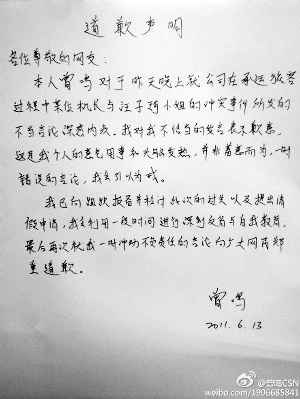 道歉声明
各位尊敬的网友:
本人曾鸣对于昨天晚上就公司在承运旅客
过程中某位机长与汪子琦小姐的冲突事件所发的
不当言论深感内疚。我对我不恰当的发言表示歉意,
这是我个人的意气用事和头脑发热,并非蓄意而为,一时
错误的言论,我会引以为戒。
我已向组织报告并检讨此次的过失以及提出请
假申请,我会利用一段时间进行深刻反省与自我教育,
最后再次就我一时冲动不负责任的言论向广大网民郑
重道歉。
曾鸣
2011.6.13
@曾鸣CSN
weibo.com/1906685841